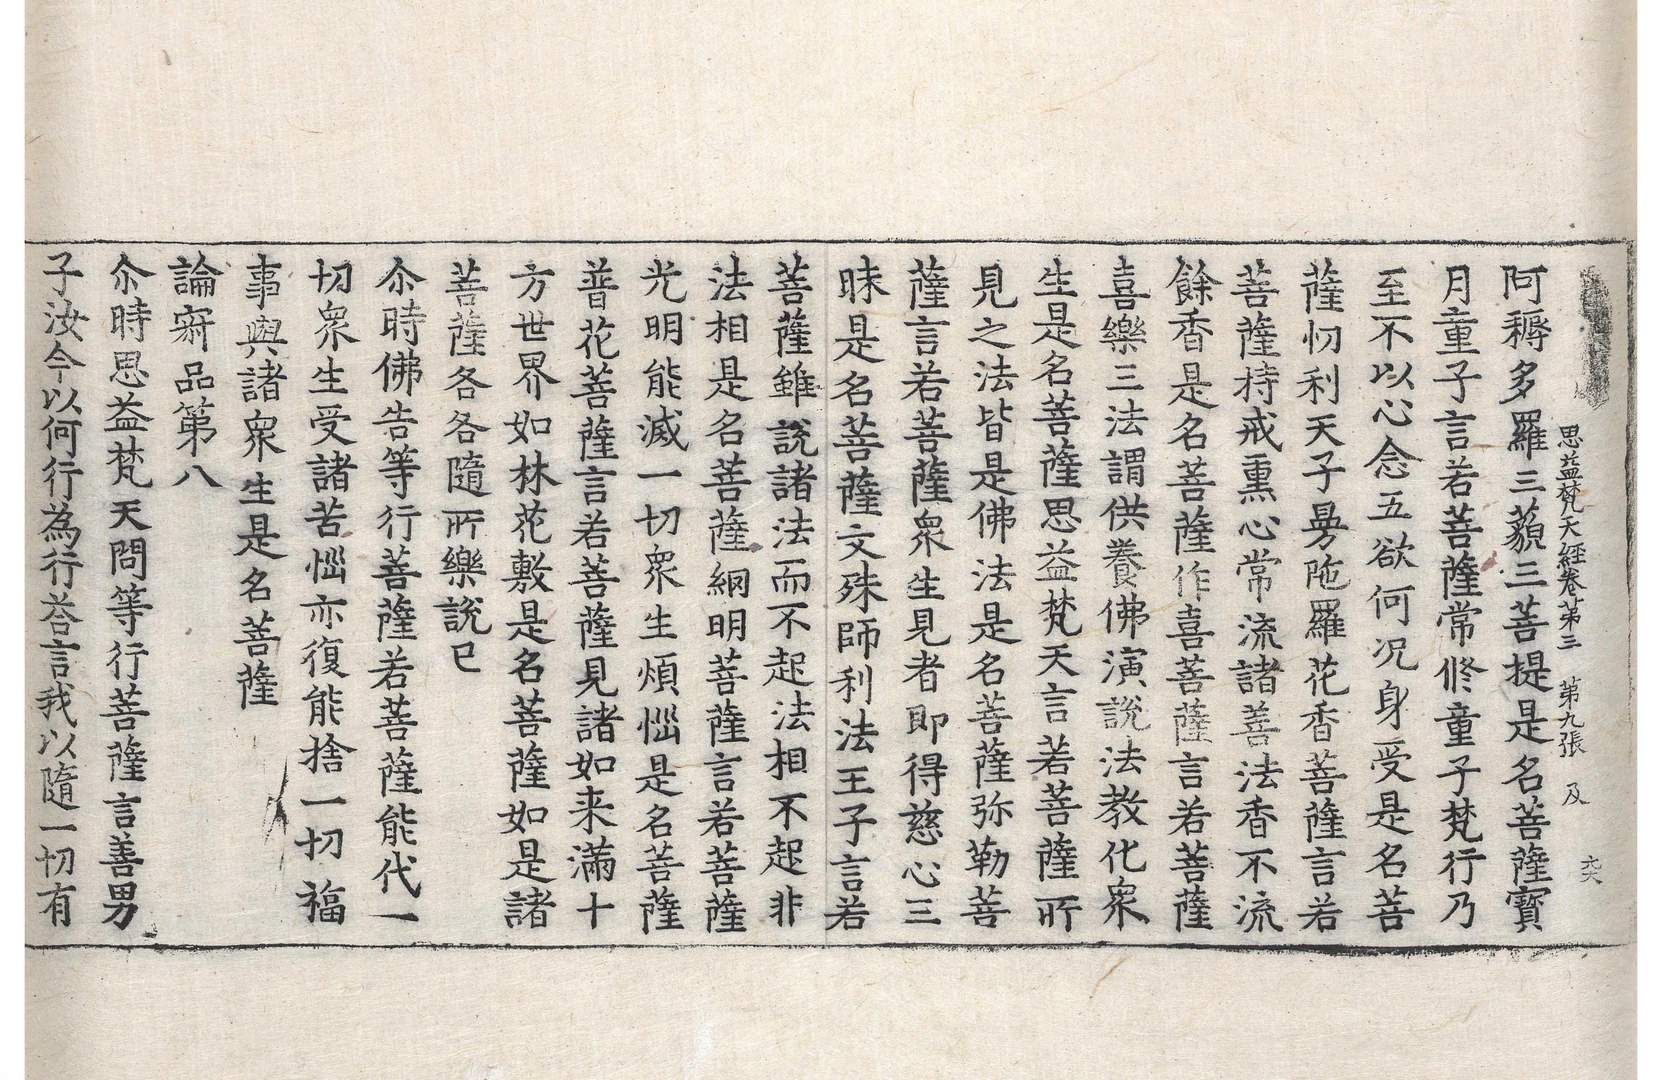 思益梵天經卷第三 第九張 及
阿耨多羅三藐三菩提是名菩薩寳
月童子言若菩薩常修童子梵行乃
至不以心念五欲何况身受是名菩
薩忉利天子曼陁羅花香菩薩言若
菩薩持戒熏心常流諸善法香不流
餘香是名菩薩作喜菩薩言若菩薩
喜樂三法謂供養佛演說法教化衆
生是名菩薩思益梵天言若菩薩所
見之法皆是佛法是名菩薩弥勒菩
薩言若菩薩衆生見者即得慈心三
昧是名菩薩文殊師利法王子言若
菩薩雖說諸法而不起法相不起非
法相是名菩薩網明菩薩言若菩薩
光明能滅一切衆生煩惱是名菩薩
普花菩薩言若菩薩見諸如来滿十
方世界如林花敷是名菩薩如是諸
菩薩各各隨所樂說已
尒時佛告等行菩薩若菩薩能代一
切衆生受諸苦惱亦復能捨一切福
事與諸衆生是名菩薩
論寂品第八
尒時思益梵天問等行菩薩言善男
子汝今以何行為行荅言我以隨一切有